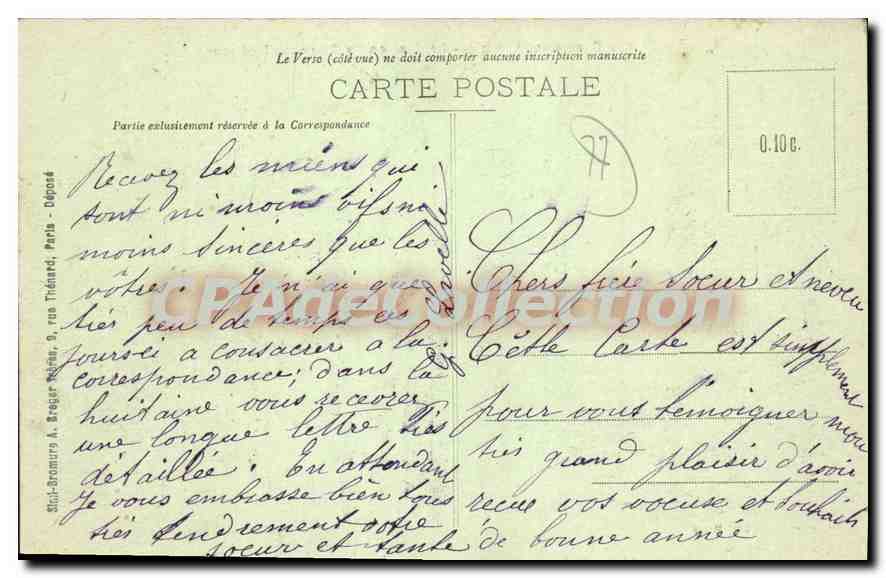 Le Verso (côté vue) ne doit comporter aucune inscription manuscrite
CARTE POSTALE
Partie exclusivement réservée à la Correspondance
0.10 c.
77
Chers frère soeur et neveu
Cette Carte est simplement
pour vous témoigner mon
très grand plaisir d'avoir
recue vos voeuse et souhaits
de bonne année
Recevez les miens qui
sont ni moins vifs ni
moins sincères que les
vôtres. Je n'ai que
très peu de temps ces
jours-ci a consacrer à la
correspondance; dans la
huitaine vous recevrez
une longue lettre très
détaillée. En attendant
Je vous embrasse bien tous
très tendrement votre
soeur et tante
Simi-Bromure A. Breger frères, 9, rue Thénard, Paris - Déposé
CPAdeCollection